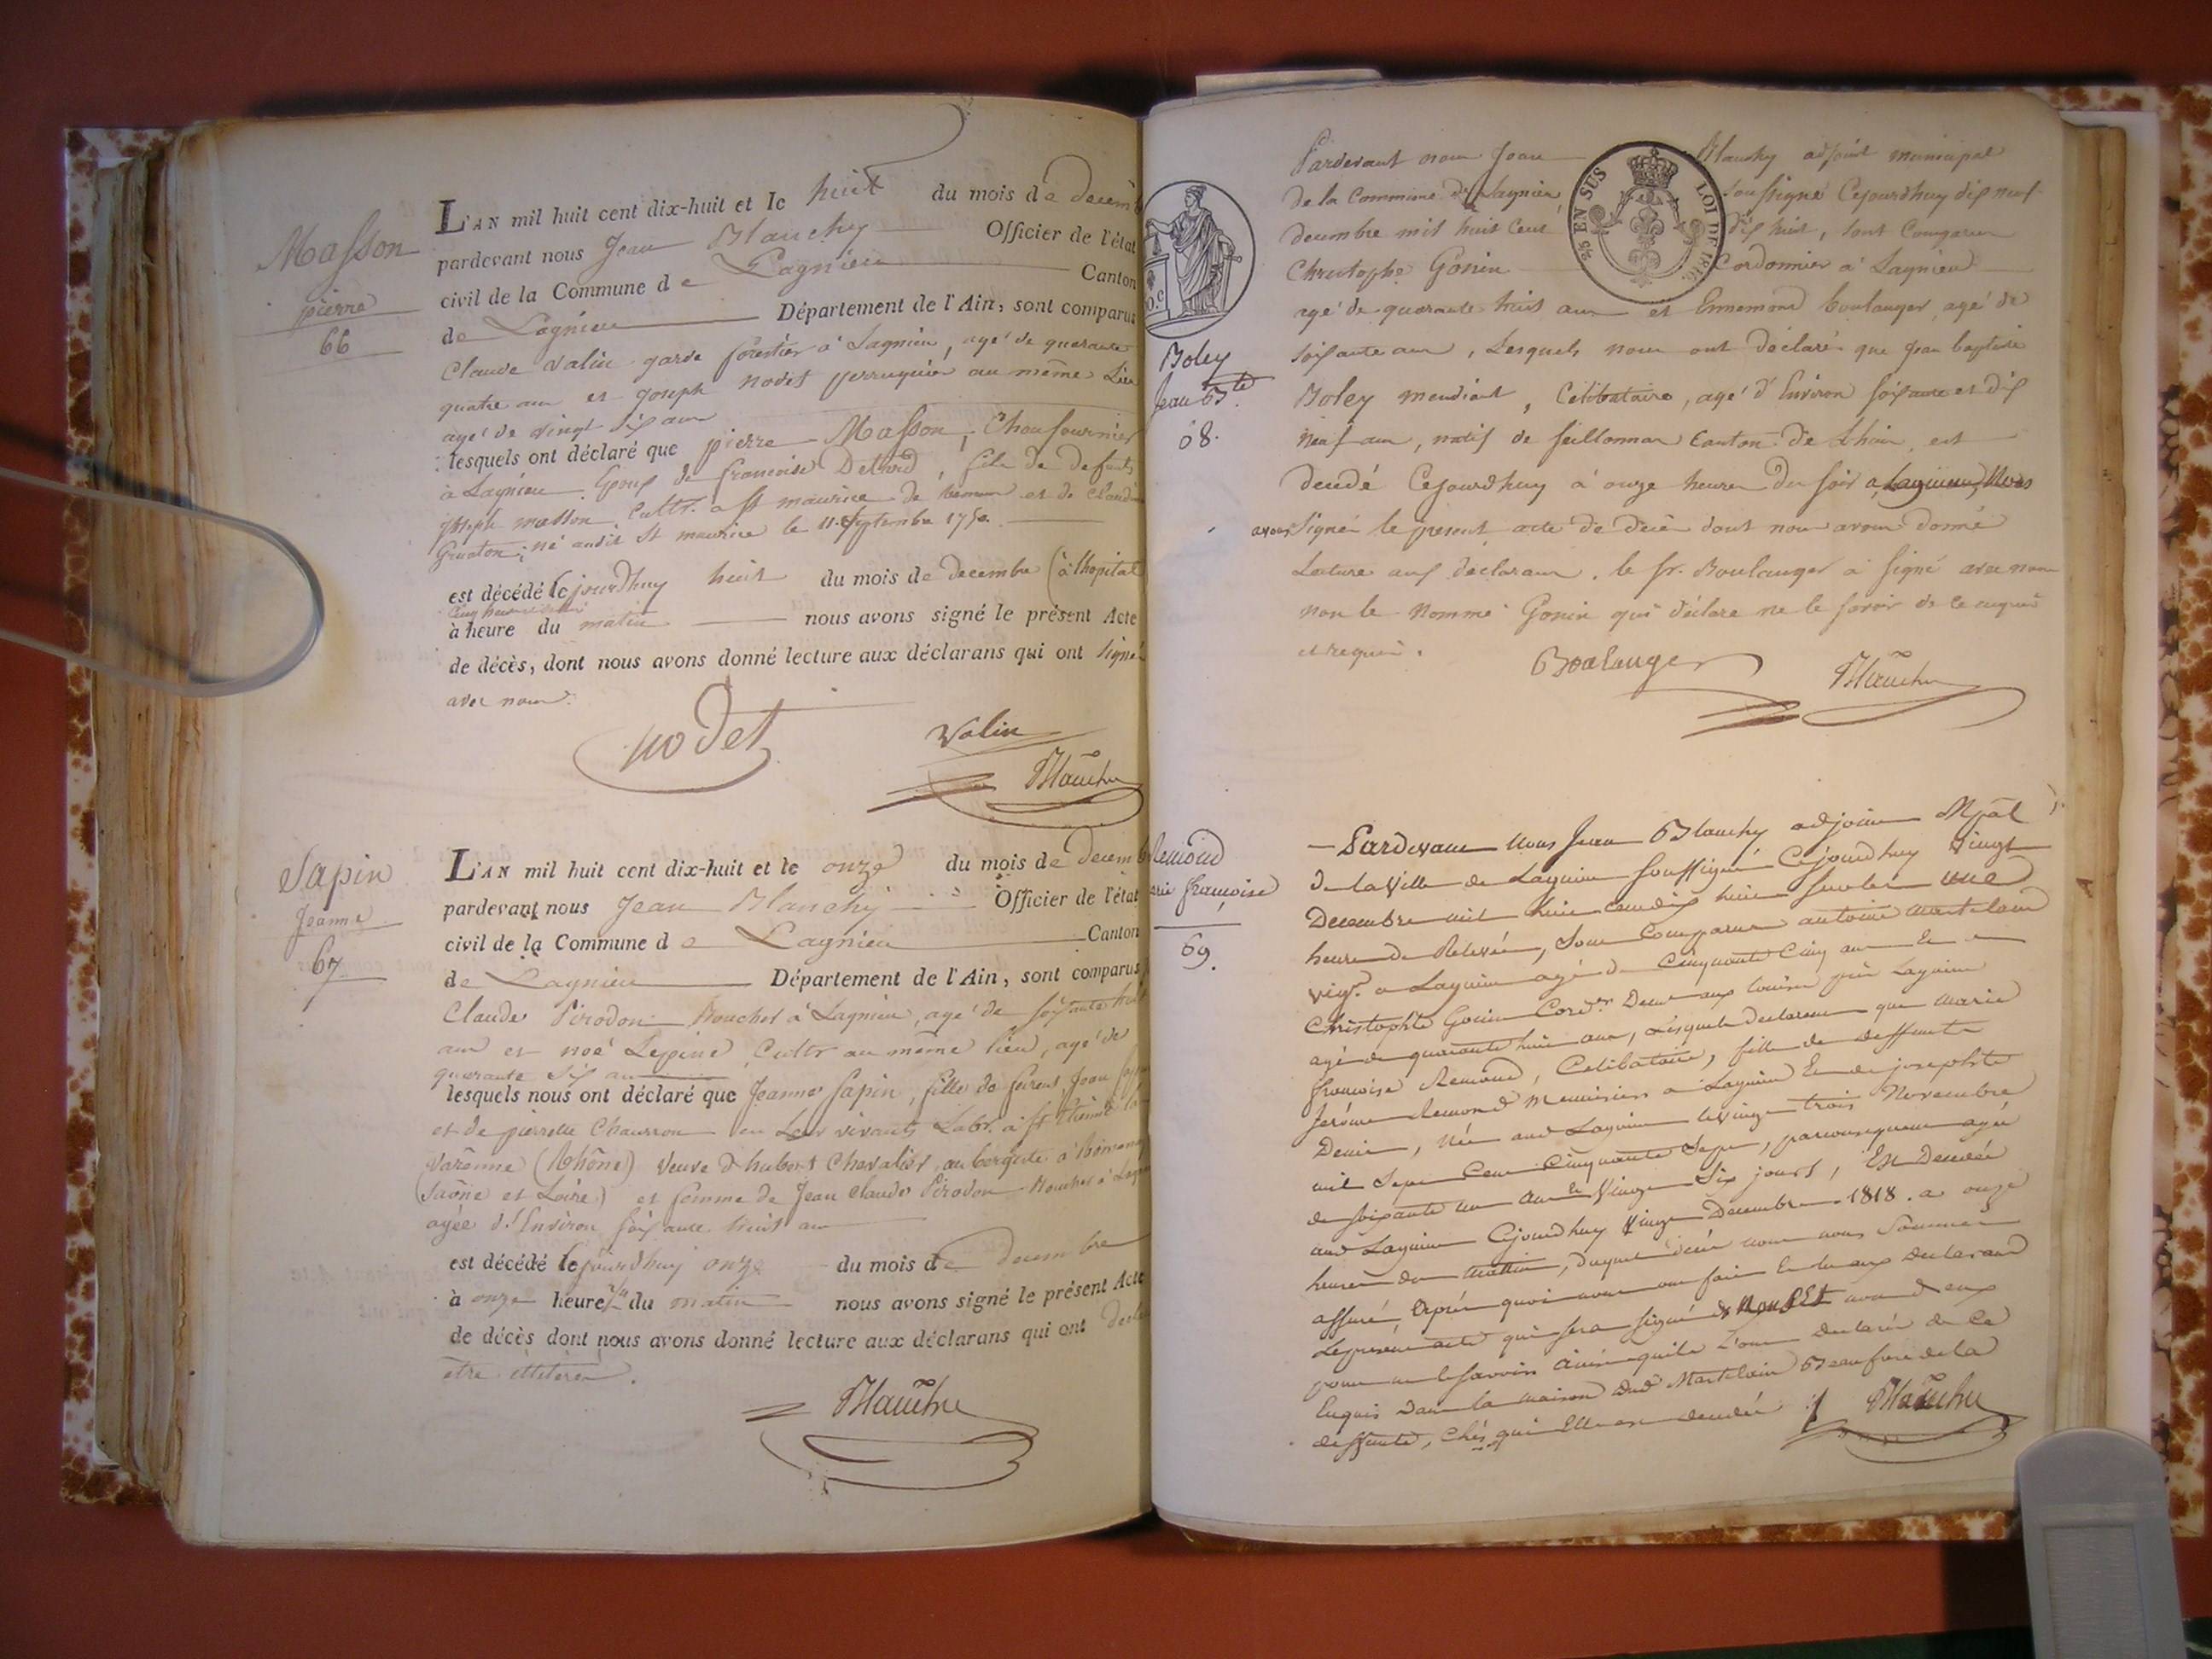 Masson
pierre
66
L'AN mil huit cent dix-huit et le huit du mois de decemb
pardevant nous Jean Blanchy Officier de l'état
civil de la Commune de Lagnieu Canton
de Lagnieu Département de l'Ain, sont comparus
Claude Valin garde forestier à Lagnieu, agé de quarante
quatre ans et Joseph Nodet perruquier au même Lieu
agé de vingt six ans
lesquels ont déclaré que pierre Masson, Chaufournier
à Lagnieu Epoux de francoise , fils de defunts
Joseph masson Cultr. a St maurice de et de Claud
; né audit St maurice le 11. Septembre 1750.
est décédé Cejourdhuy huit du mois de decembre (à lhopital
cinq heures
à heure du matin nous avons signé le présent Acte
de décès, dont nous avons donné lecture aux déclarans qui ont signé
avec nous.
nodet
Valin
Blanchy
Sapin
Jeanne
67
L'AN mil huit cent dix-huit et le onze du mois de Decemb
pardevant nous Jean Blanchy Officier de l'état
civil de la Commune de Lagnieu Canton
de Lagnieu Département de l'Ain, sont comparus
Claude Pirodon Boucher à Lagnieu, agé de soixante huit
ans et noé Lepine Cultr au même lieu, agé de
quarante six ans
lesquels nous ont déclaré que Jeanne Sapin, fille de Jean
et de pierrette Chausson en Leur vivants Labr. à St Etienne la
Varenne (Rhône) Veuve d'hubert Chevalier aubergiste à
(Saône et Loire) et femme de Jean Claude Pirodon Boucher à Lagn
agée d'Environ soixante huit ans
est décédé Cejourdhuy onze du mois de decembre
à onze heures du matin nous avons signé le présent Acte
de décès dont nous avons donné lecture aux déclarans qui ont decla
être illiterés.
Blanchy
Boley
Jean Bte.
68.
25c EN SUS LOI DE 1816.
Pardevant nous Jean Blanchy adjoint municipal
de la Commune de Lagnieu soussigné Cejourdhuy dix neuf
decembre mil huit Cent dix huit, sont Comparus
Christophe Gonin Cordonnier à Lagnieu
agé de quarante huit ans et Ennemond boulanger, agé de
soixante ans, Lesquels nous ont déclaré que Jean baptiste
Boley mendiant, Célibataire, agé d'Environ soixante et dix
neuf ans, natif de Seillonnas Canton de Lhuis, est
decedé Cejourdhuy à onze heures du soir a Lagnieu, Nous
avons signé le present acte de decès dont nous avons donné
Lecture aux declarans. le Sr. Boulanger à signé avec nous
non le Nommé Gonin qui déclare ne le savoir de ce enquis
et requis.
Boulanger
Blanchy
Remond
arie françoise
69.
Pardevant Nous Jean Blanchy adjoint Mpal
de la Ville de Lagnieu soussigné Cejourdhuy Vingt
Decembre mil huit cent dix huit sur les une
heure de Relevée, sont Comparus antoine martelain
vign. a Lagnieu agé de Cinquante Cinq ans Et
Christophle Gonin Cordr. Demt aux près Lagnieu
agé de quarante huit ans, Lesquels declarent que Marie
françoise Remond, Celibataire, fille de deffunts
Jerôme Remond Menuisier a Lagnieu Et de josephte
Denis, Née aud Lagnieu le vingt trois Novembre
mil Sept Cent Cinquante Sept, par consequent agée
de soixante un ans et Vingt Six jours, Est Decedée
aud Lagnieu Cejourdhuy Vingt Decembre 1818. a onze
heures du Mattin, duquel decés nous nous Sommes
assuré, Après quoi avons fait Lecture aux declarans
Le present acte qui sera signé de Nous Et non d'eux
pour ne le savoir ainsi qu'ils L'ont declaré de Ce
Enquis Dans la maison dud Martelain Beau frere de la
deffunte, Chés qui Elle est decedée
Blanchy